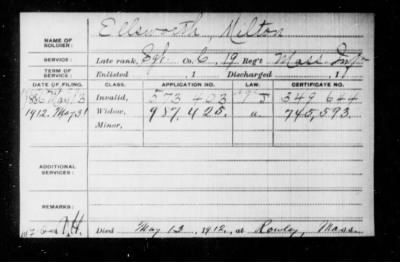 NAME OF SOLDIER: Ellsworth, Milton
SERVICE: Late rank, Sgt. Co. C, 19 Reg't Mass. Inf.
TERM OF SERVICE: Enlisted , 1 Discharged , 1
DATE OF FILING. CLASS. APPLICATION NO. LAW. CERTIFICATE NO.
1886 Mar 13 Invalid, 573 423 349 644
1912. May 31 Widow, 987,425. a. 745,593.
Minor,
ADDITIONAL SERVICES:
REMARKS:
Died May 13, 1912, at Rowley, Mass.